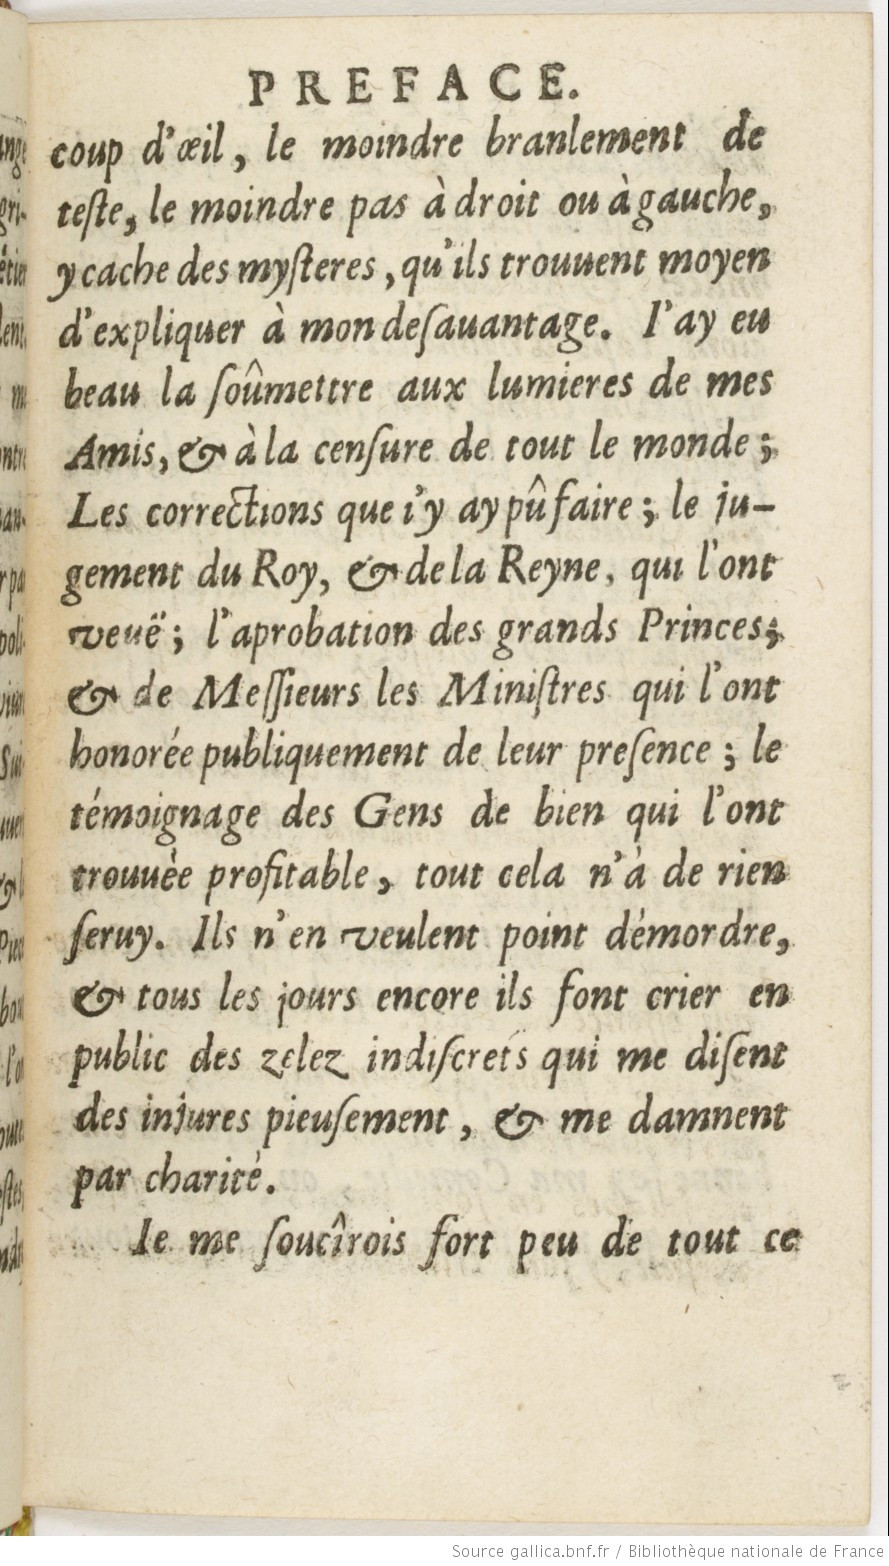 PREFACE.
coup d'œil, le moindre branlement de
teſte, le moindre pas à droit ou à gauche,
y cache des myſteres, qu'ils trouuent moyen
d'expliquer à mon deſauantage. I'ay eu
beau la ſoûmettre aux lumieres de mes
Amis, & à la cenſure de tout le monde;
Les corrections que i'y ay pû faire; le ju-
gement du Roy, & de la Reyne, qui l'ont
veuë; l'aprobation des grands Princes;
& de Meſſieurs les Miniſtres qui l'ont
honorée publiquement de leur preſence; le
témoignage des Gens de bien qui l'ont
trouuée profitable, tout cela n'à de rien
ſeruy. Ils n'en veulent point démordre,
& tous les jours encore ils font crier en
public des zelez indiſcrets qui me diſent
des injures pieuſement, & me damnent
par charité.
Ie me ſoucîrois fort peu de tout ce
Source gallica.bnf.fr / Bibliothèque nationale de France